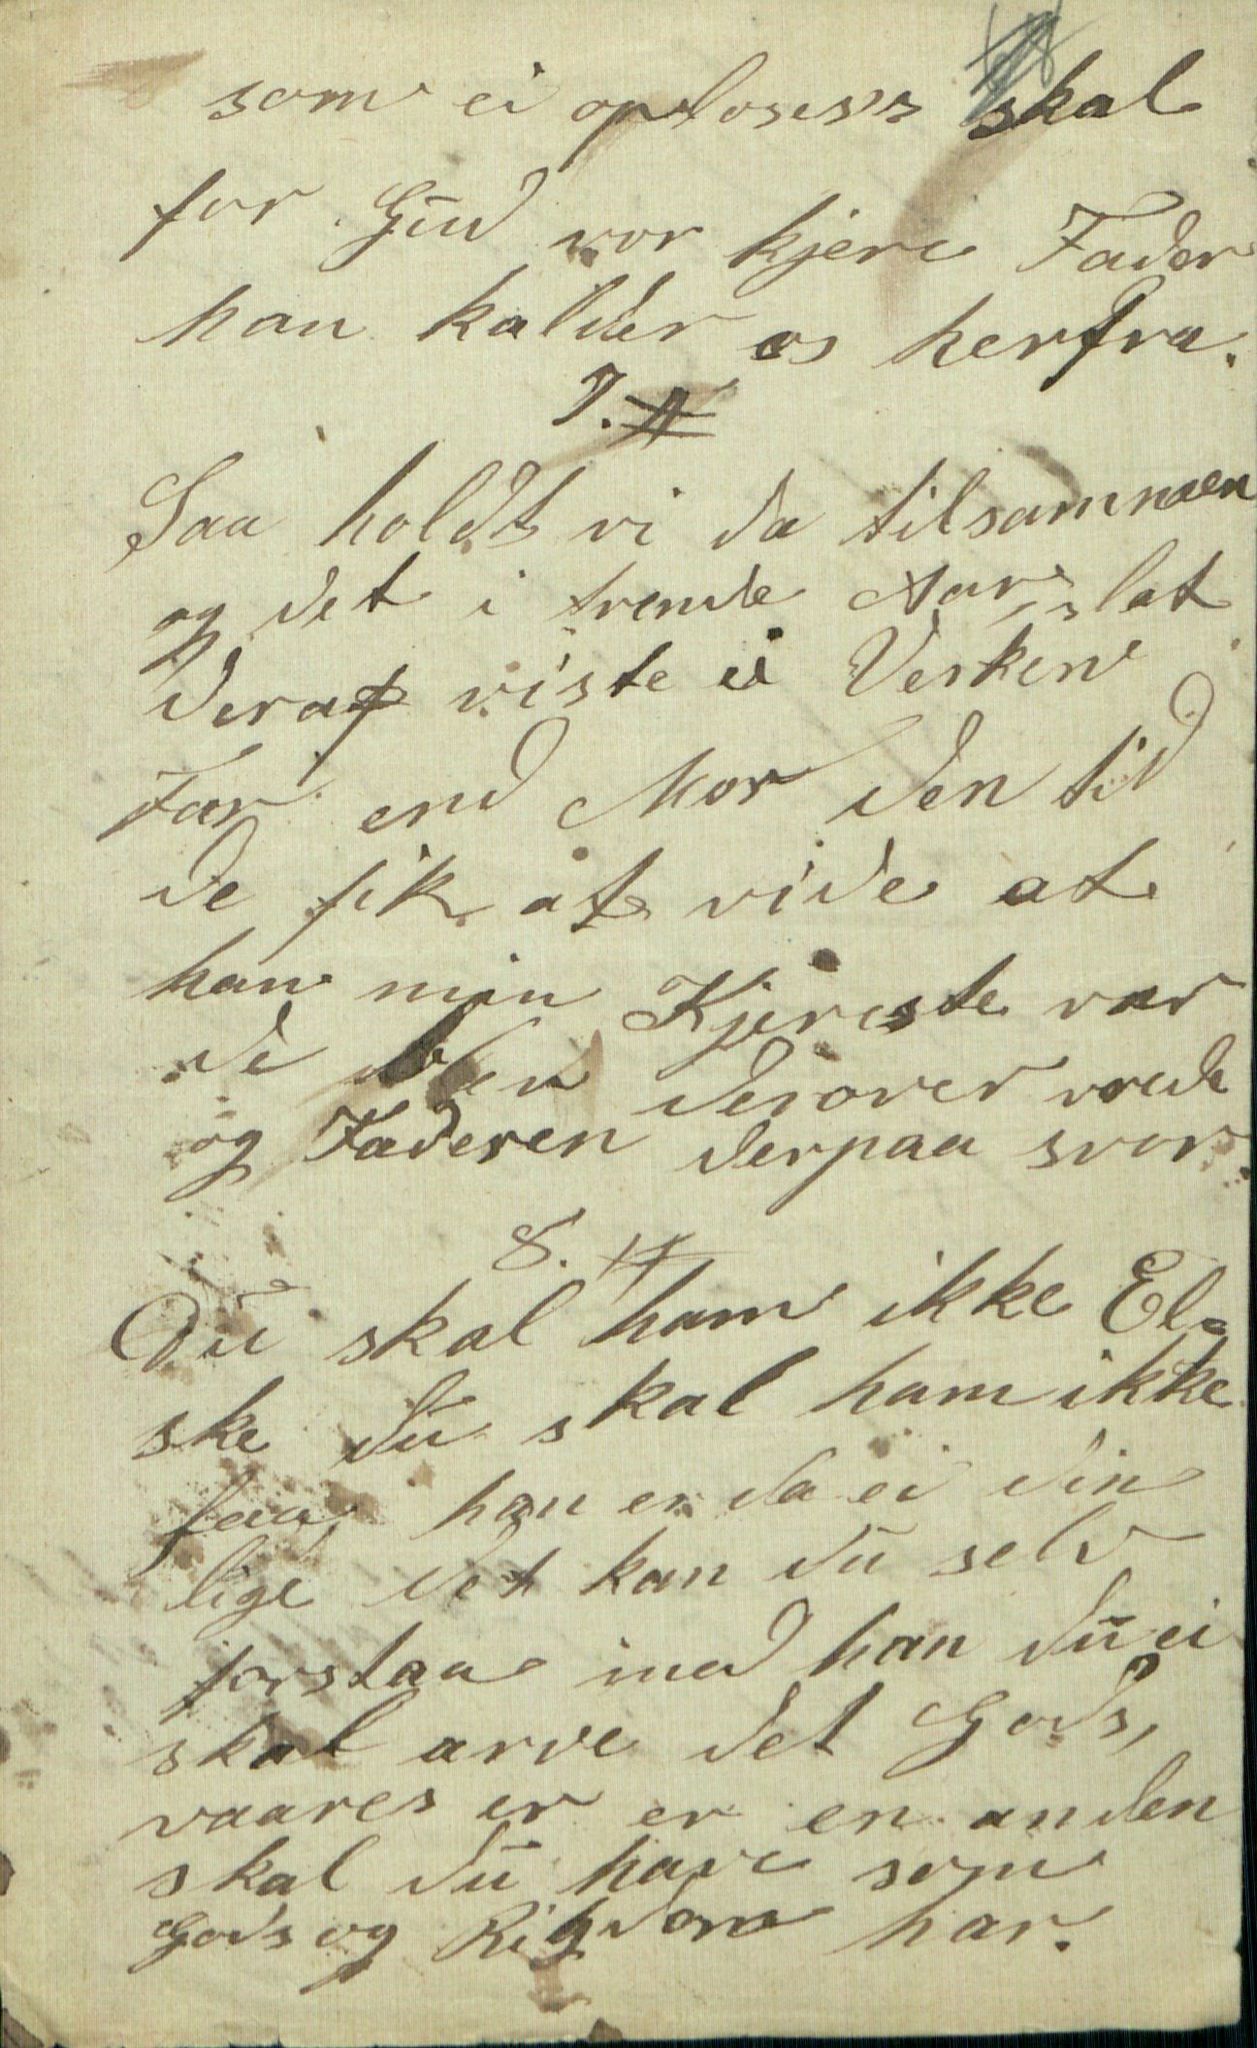 som ei oplosess skal
for Gud vor kjere Fader
han kalder os herfra.
7.
Saa holdt vi da tilsammen
og det i trende Aar, slet
deraf viste ei Verken
Far end Mor den tid
de fik at vide at
han min Kjereste var
de blev derover vrede
og Faderen derpaa svor.
8.
Du skal ham ikke El=
ske du skal ham ikke
faa, han er da ei din
lige det kan du selv
forstaa med han du ei
skal arve det Gods,
vaares er er en anden
skal du have som
Gods og Rigdom har.